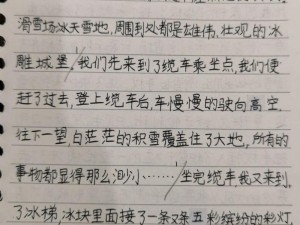 滑雪场冰天雪地,周围到处都是雄伟、壮观的冰
雕城堡。我们先来到了缆车乘坐点,我们便
赶了过去,登上缆车后,车慢慢的驶向高空,
往下一望,白茫茫的积雪覆盖住了大地,所有的
事物都显得那么渺小……坐完缆车我又来到
了冰梯,冰块里面接了一条又条五彩缤纷的彩灯